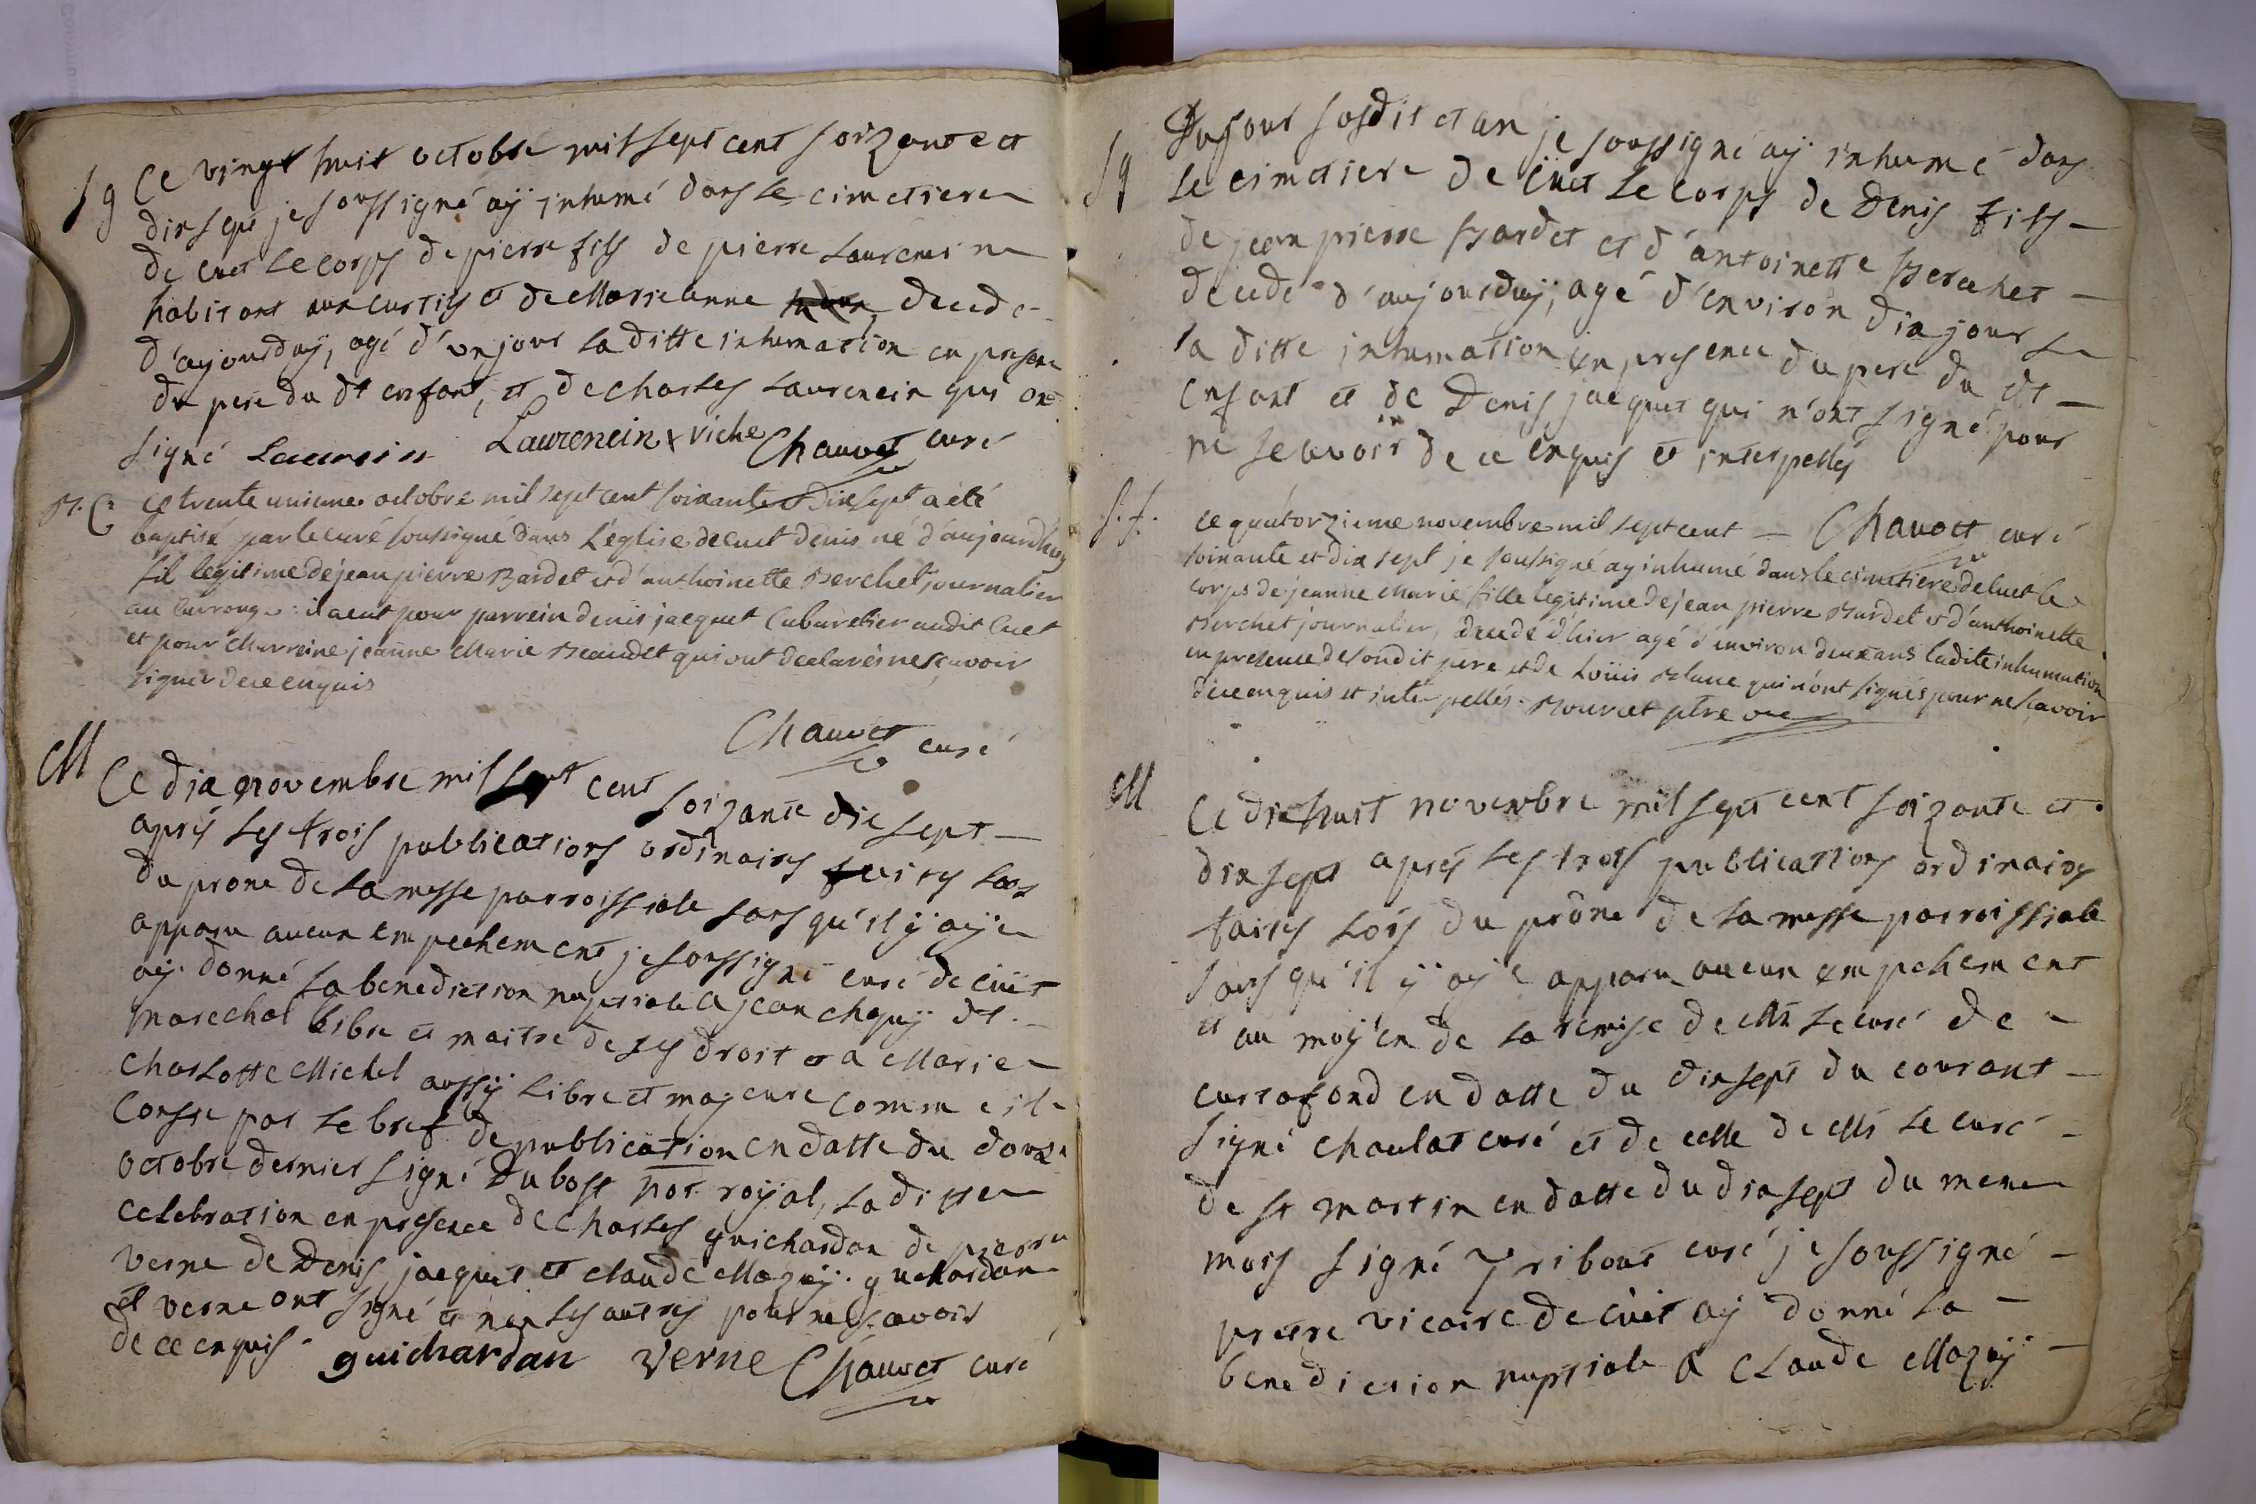 Sg Ce vingt huit octobre mil sept cent soizante et
dixsept je soussigné aÿ inhumé dans le cimetiere
de cuet le corps de pierre fils de pierre Laurencin
habitant aux curtils et de Marie anne decede
d'aujourduÿ, agé d'un jour la ditte inhumation en presence
du pere du dt enfant, et de charles Laurencin qui ont
signé Laurencin Laurencin viche Chauvet curé
B. G. Ce trente unieme octobre mil sept cent soixante et dix sept a été
baptisé par le curé soussigné dans l'église de cuet denis né d'aujourd'huy
fil legitime de jean pierre Bardet et d'anthoinette Berchet journalier
au il a eut pour parrein denis jacquet Cabaretier audit Cuet
et pour Marreine jeanne Marie Beaudet qui ont declarés ne sçavoir
signer de ce enquis
Chauvet curé
M Ce dix novembre mil sept cent soizante dix sept
aprés les trois publications ordinaires faites lors
du prone de la messe parroissiale sans qu'il ÿ aÿe
apparu aucun empechement je soussigné curé de cüet
aÿ donné la benediction nuptiale a jean chapuÿ dt
marechal libre et maitre de ses droit et a Marie
charlotte Michel aussÿ libre et majeure comme il
conste par le bref de publication en datte du douze
octobre dernier signé Dubost not. roÿal, la ditte
celebration en presence de charles guichardan de pierre
verne de Denis jacquet et claude Mazuÿ. guichardan
et verne ont signé et non les autres pour ne scavoir
de ce enquis guichardan Verne Chauvet curé
Sg Du jour susdit et an je soussigné aÿ inhumé dans
le cimetiere de cüet le corps de Denis fils
de jean pierre Bardet et d'antoinette Berchet
decedé d'aujourduÿ, agé d'environ dix jours
la ditte inhumation en presence du pere du dt
enfant et de Denis jacquet qui n'ont signé pour
ne scavoir de ce enquis et interpellés
Chauvet curé
S. f. ce quatorzieme novembre mil sept cent
soixante et dix sept je soussigné ay inhumé dans le cimetiere de cuet le
corps de jeanne Marie fille legitime de jean pierre Bardet et d'anthoinette
Berchet journalier, decedé d'hier agé d'environ deux ans ladite inhumation
en presence de son dit pere et de Loüis Blanc qui n'ont signés pour ne sçavoir
de ce enquis et interpellés. Mourcet ptre vic
M Ce dixhuit novembre mil sept cent soizante et
dixsept aprés les trois publications ordinaires
faites lors du prône de la messe parroissiale
sans qu'il ÿ aÿe apparu aucun empechement
et au moÿen de la remise de Mr le curé de
curtafond en datte du dixsept du courant
signé chaulat curé et de celle de Mr le curé
de st martin en datte du dixsept du meme
mois signé Yribout curé je soussigné
pretre vicaire de cüet aÿ donné la
benediction nuptiale a Claude Mazuÿ